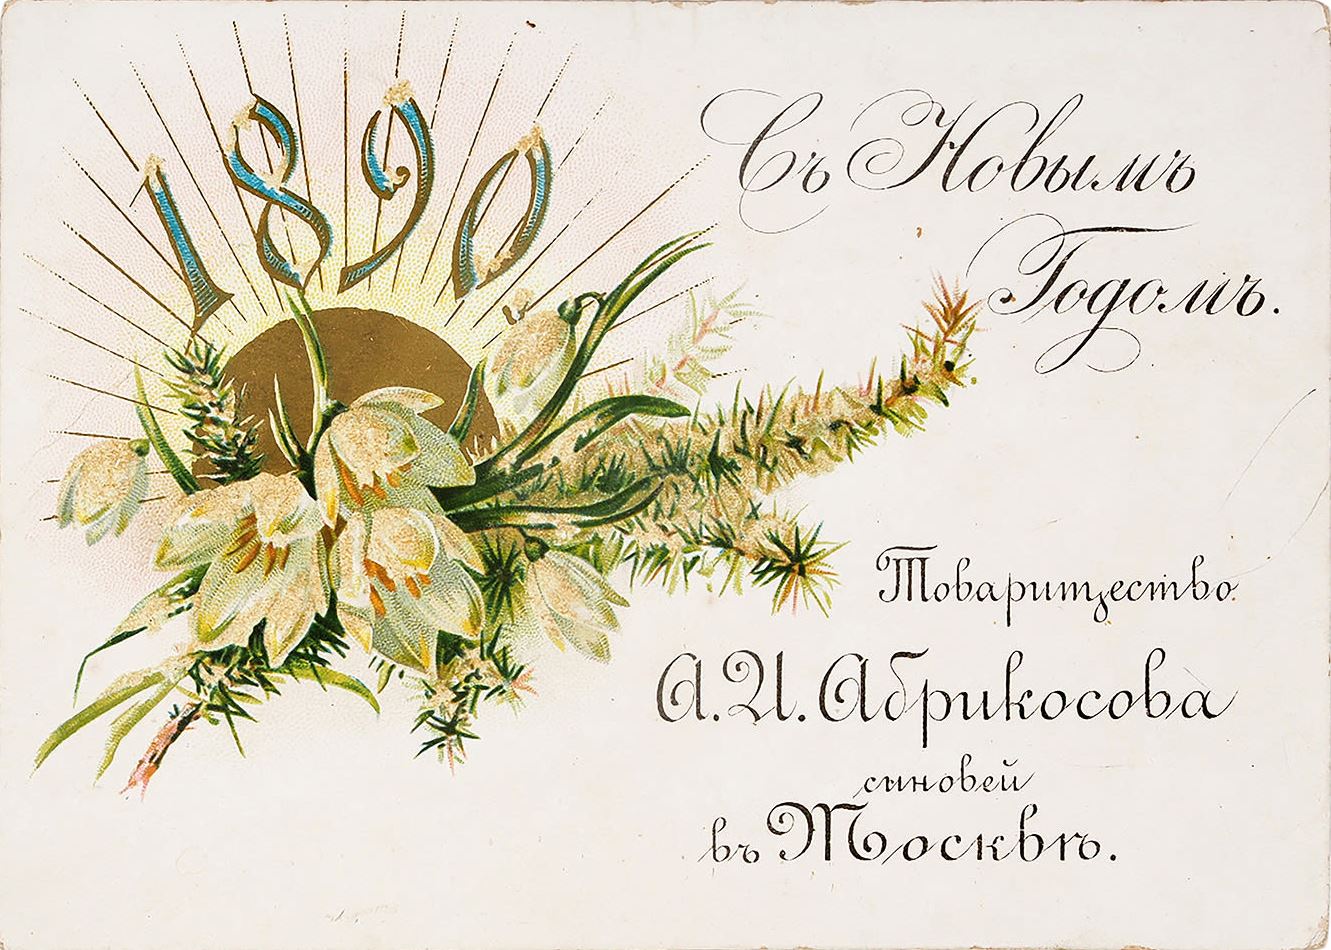 1890
Съ Новымъ
Годомъ.
Товарищество
А.И.Абрикосова
сыновей
въ Москвѣ.